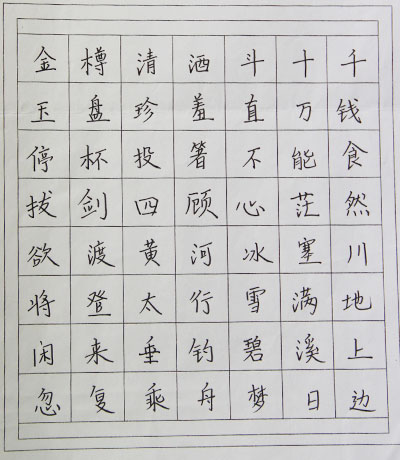 金樽清酒斗十千
玉盘珍羞直万钱
停杯投箸不能食
拔剑四顾心茫然
欲渡黄河冰塞川
将登太行雪满地
闲来垂钓碧溪上
忽复乘舟梦日边